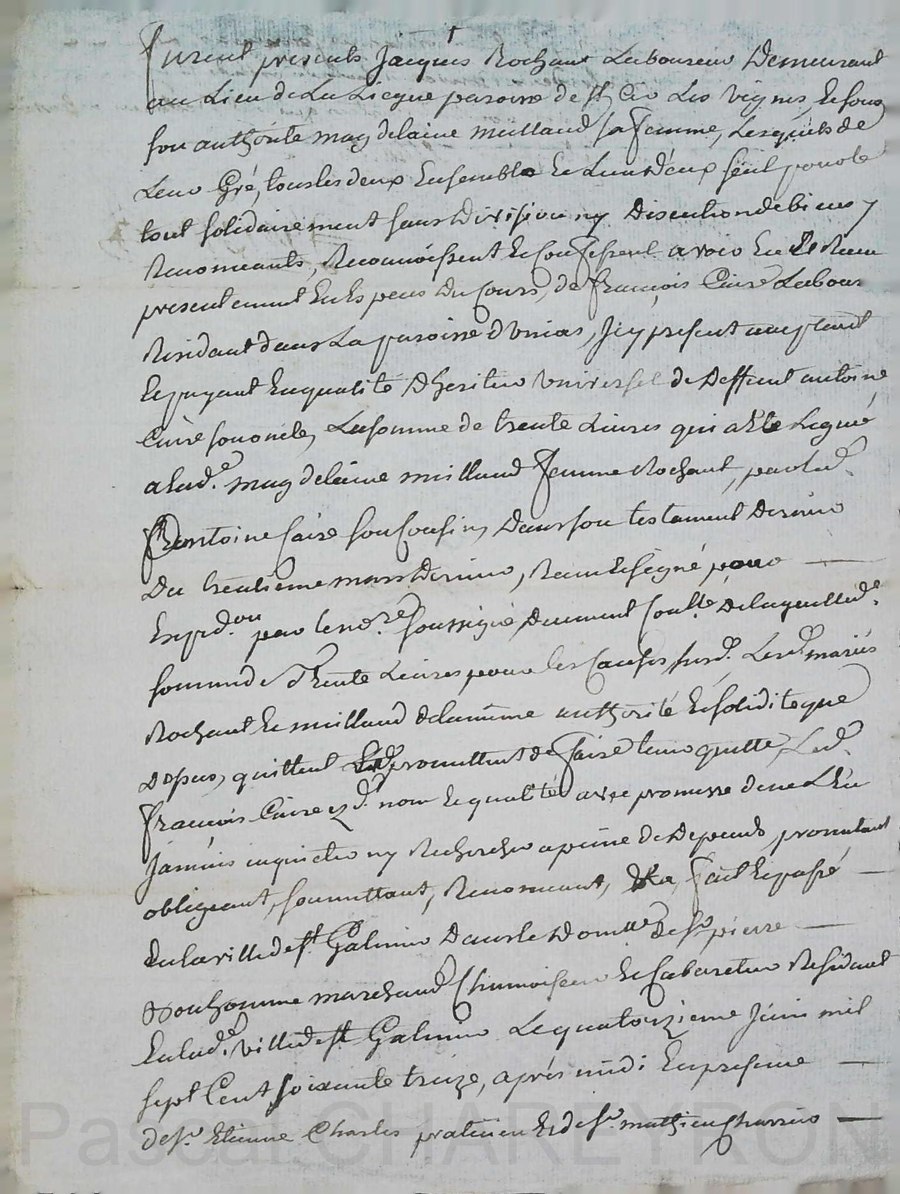 furent presents Jacques Rochant Laboureur Demeurant
au Lieu de La Liegue paroisse de st Cir Les vignes, Et sous
son authorité magdelaine milland sa femme, Lesquels de
Leur Gré, tous les deux Ensemble Et L'un d'eux seul pour le
tout solidairement sans Division ny Discution de biens y
Renonceants, Reconnoissent Et Confessent avoir Eu Et Receu
presentement En Especes Du Cours, de françois Caire Labour
Residant dans La paroisse d'unias, Icy present acceptant
Et payant En qualité D'heritier Universel de Deffunt antoine
Caire son oncle, La somme de trente Livres qui a Eté Leguée
a Lad.e magdelaine milland femme Rochant, par Led.
antoine Caire son Cousin, Dans son testament Dernier
Du trentieme mars Dernier, Receu Et signé pour
Expéd.on par le no.re soussigné Duement Con.llé De laquelle d.
somme de Trente Livres pour les Causes susd. Lesd. mariés
Rochant Et milland de la meme authorité Et solidité que
Dessus, quittent Et promettent de faire tenir quitte Led.
françois Caire esd. nom Et qualité avec promesse de ne L'en
Jamais inquieter ny Rechercher a peine de Depends, promettant
obligeant, soumettant, Renonceant, fait Et passé
En la ville de st Galmier Dans le Dom.lle De sr pierre
Bonhomme marchand Chamoiseur Et Cabaretier Residant
En lad.e ville de st Galmier Le quatorzieme Juin mil
sept Cent soixante treize, après midi En presence
de sr Etienne Charles praticien Et de sr mathieu Charrier
Pascal CHAREYRON